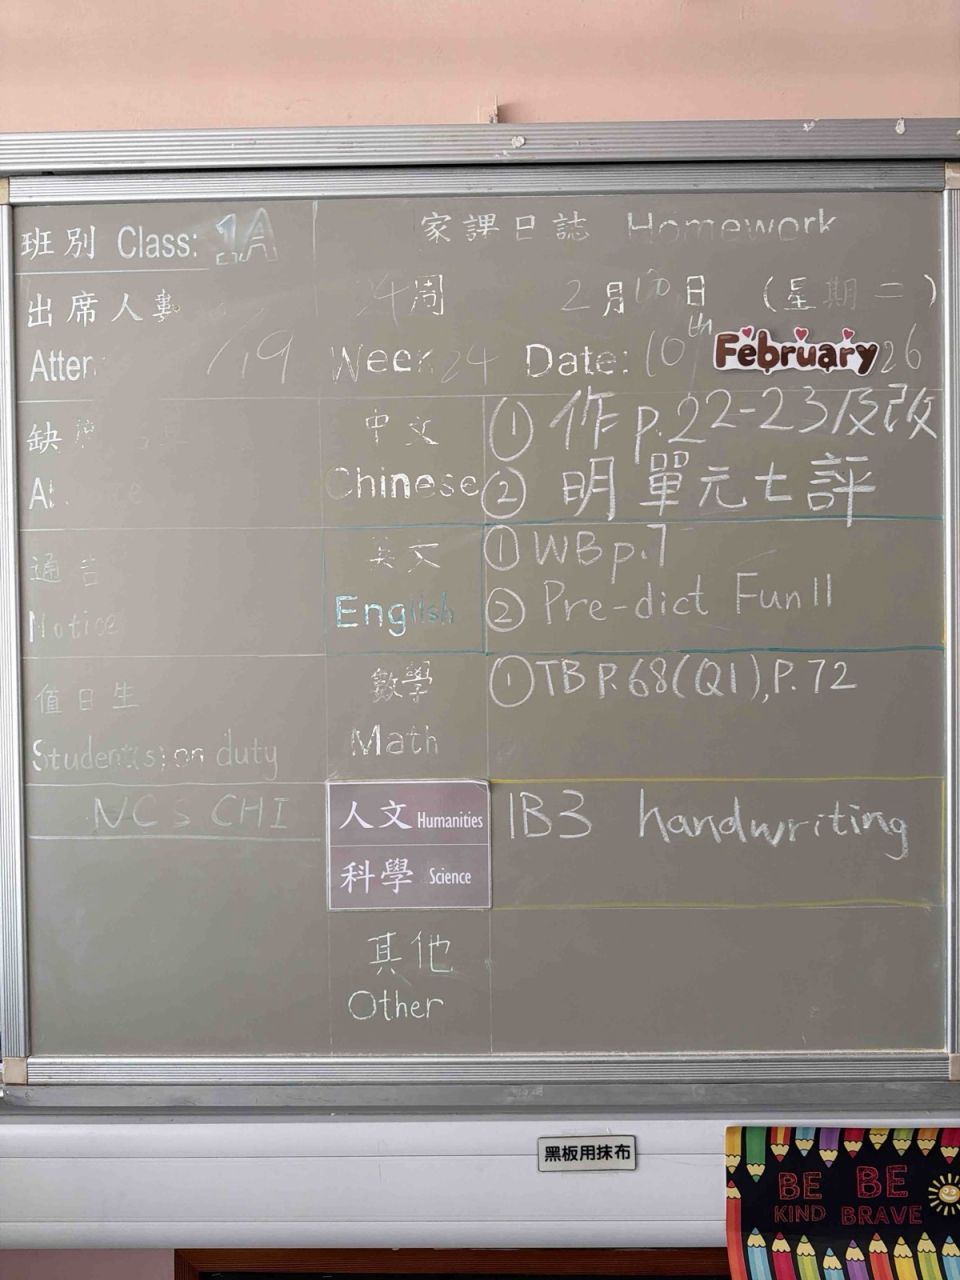 班別 Class: 1A
家課日誌 Homework
出席人數
24周 2月10日 (星期二)
/19
Week 24 Date: 10th February 26
中文 Chinese
① 作 p.22-23及改
② 明單元七評
英文 English
① WB p.7
② Pre-dict Fun 11
通告
Notice
數學 Math
① TB P.68(Q1), P.72
值日生
Student(s) on duty
NCS CHI
人文 Humanities
科學 Science
1B3 handwriting
其他
Other
黑板用抹布
BE KIND
BE BRAVE